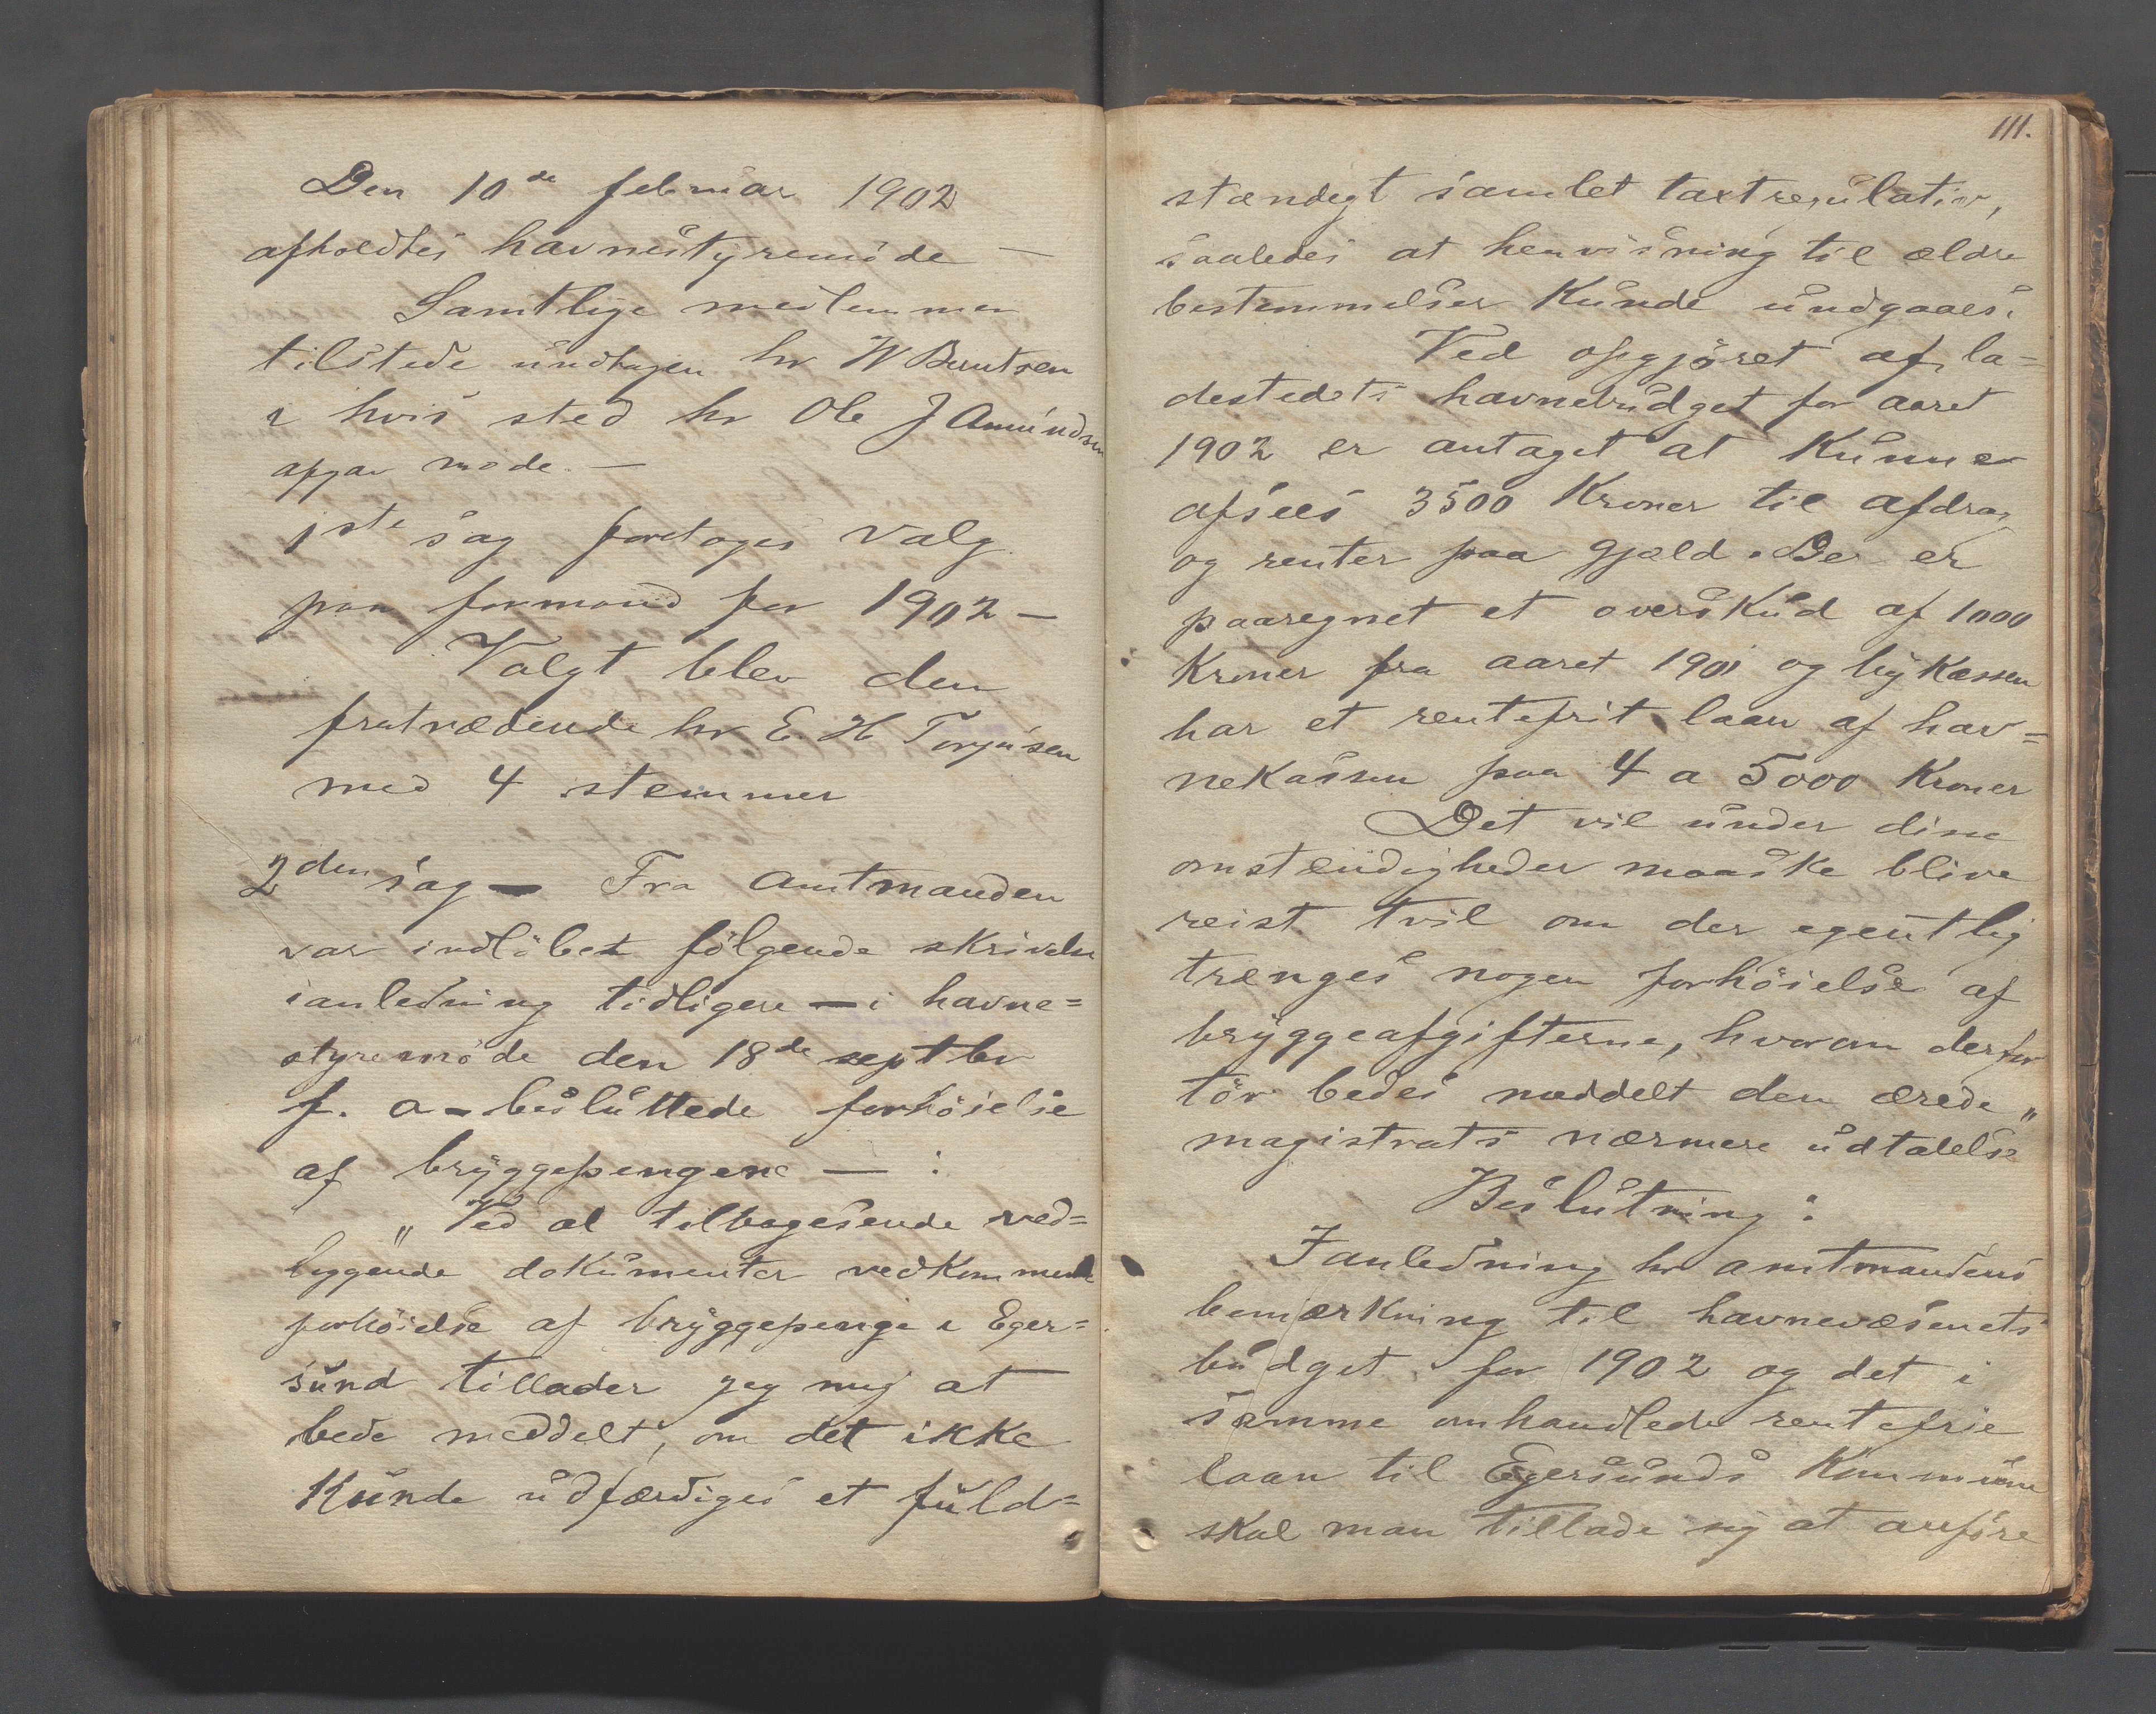 Den 10de februar 1902
afholdtes havnestyremöde —
Samtlige medlemmer
tilstede undtagen hr W Berntsen
i hvis sted hr Ole J Amundsen
afgav möde. —
1ste sag foretoges valg
paa formand for 1902 —
Valgt blev den
fratrædende hr E. H Torjusen
med 4 stemmer
2den sag — Fra amtmanden
var indlöbet fölgende skrivelse
ianledning tidligere — i havne=
styremöde den 18de septbr
f. a – besluttede forhöielse
af bryggepengene — :
„ Ved at tilbagesende ved=
liggende dokumenter vedkommende
forhöielse af bryggepenge i Eger=
sund tillader jeg mig at
bede meddelt, om det ikke
Kunde udfærdiges et fuld=
111.
stændigt samlet taxtregulativ,
saaledes at henvisning til ældre
bestemmelser Kunde undgaaes.
Ved opgjöret af la=
destedets havnebudget for aaret
1902 er antaget at Kunne
afsees 3500 Kroner til afdrag
og renter paa gjæld. Der er
paaregnet et overskud af 1000
Kroner fra aaret 1901 og byKassen
har et rentefrit laan af hav=
neKassen paa 4 a 5000 Kroner
Det vil under disse
omstændigheder maaske blive
reist tvil om der egentlig
trænges nogen forhöielse af
bryggeafgifterne, hvorom derfor
tör bedes meddelt den ærede
magistrats nærmere udtalelse"
Beslutning :
Ianledning hr amtmandens
bemærkning til havnevæsenets
budget for 1902 og det i
samme omhandlede rentefrie
laan til Egersunds Kommune
skal man tillade sig at anföre